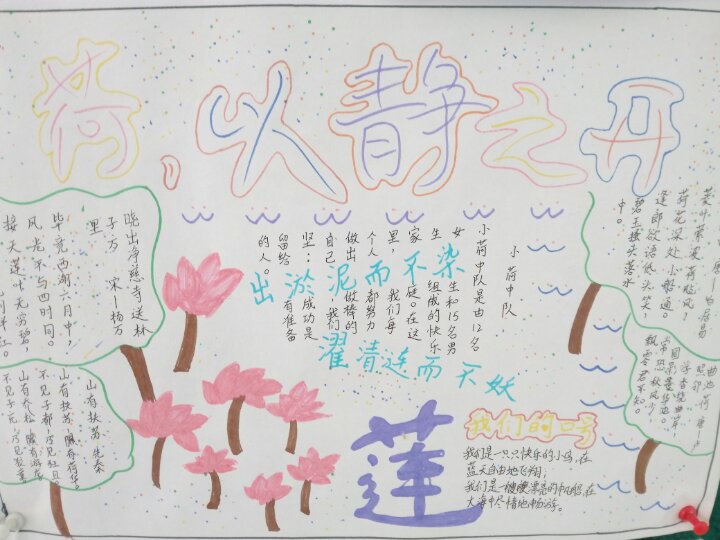 荷,以静之开
晓出净慈寺送林
子方 宋—杨万
里
毕竟西湖六月中,
风光不与四时同。
接天莲叶无穷碧,
别样红。
山有扶苏 先秦
山有扶苏,隰有荷华。
不见子都,乃见狂且
山有乔松,隰有游龙
不见子充,乃见狡童
小荷中队
小荷中队是由12名
女生和15名男
生组成的快乐
家庭。在这
里,我们每
个人都努力
做出做棒的
自己,我们
坚:成功是
留给有准备
的人。
出淤泥而不染
濯清涟而不妖
莲
唐—白居易
菱叶萦波荷飐风,
荷花深处小船通。
逢郎欲语低头笑,
碧玉搔头落水
中。
曲池荷 唐—
照邻
浮香绕曲岸,
圆影覆华池。
常恐秋风早,
飘零君不知。
我们的口号
我们是一只只快乐的小鸟,在
蓝天自由地飞翔;
我们是一艘艘漂亮的帆船,在
大海中尽情地畅游。